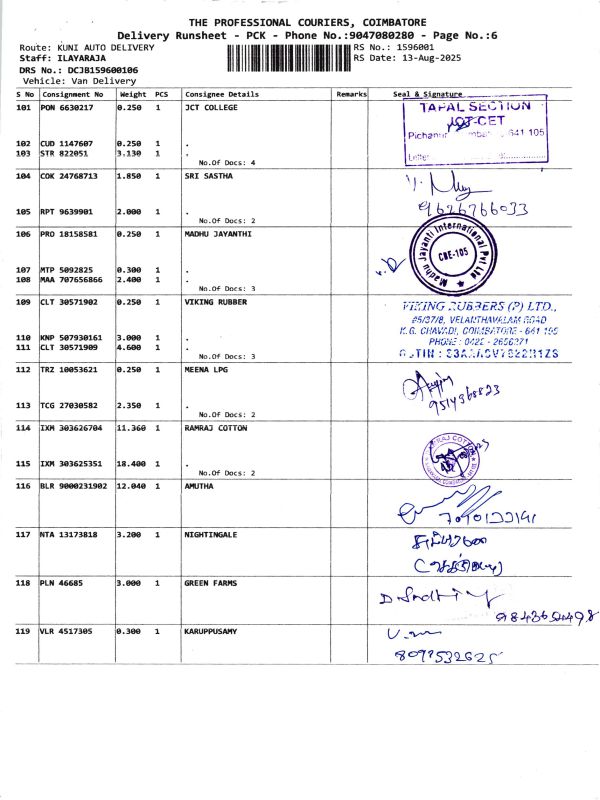 THE PROFESSIONAL COURIERS, COIMBATORE
Delivery Runsheet - PCK - Phone No.:9047080280 - Page No.:6
Route: KUNI AUTO DELIVERY RS No.: 1596001
Staff: ILAYARAJA RS Date: 13-Aug-2025
DRS No.: DCJB159600106
Vehicle: Van Delivery
S No Consignment No Weight PCS Consignee Details Remarks Seal & Signature
101 PON 6630217 0.250 1 JCT COLLEGE
TAPAL SECTION
JCT-CET
641 105
Letter
102 CUD 1147607 0.250 1 .
103 STR 822051 3.130 1 .
No.Of Docs: 4
104 COK 24768713 1.850 1 SRI SASTHA
105 RPT 9639901 2.000 1 .
9626766033
No.Of Docs: 2
106 PRO 18158581 0.250 1 MADHU JAYANTHI
Madhu Jayanti International Pvt Ltd
CBE-105
107 MTP 5092825 0.300 1 .
108 MAA 707656866 2.400 1 .
No.Of Docs: 3
109 CLT 30571902 0.250 1 VIKING RUBBER
VIKING RUBBERS (P) LTD.,
25/37/8, VELANTHAVALAM ROAD
K.G. CHAVADI, COIMBATORE - 641 105
PHONE : 0422 - 2656271
110 KNP 507930161 3.000 1 .
111 CLT 30571909 4.600 1 .
No.Of Docs: 3
112 TRZ 10053621 0.250 1 MEENA LPG
113 TCG 27030582 2.350 1 .
9514368823
No.Of Docs: 2
114 IXM 303626704 11.360 1 RAMRAJ COTTON
RAMRAJ COTTON
115 IXM 303625351 18.400 1 .
No.Of Docs: 2
116 BLR 9000231902 12.040 1 AMUTHA
117 NTA 13173818 3.200 1 NIGHTINGALE
118 PLN 46685 3.000 1 GREEN FARMS
119 VLR 4517305 0.300 1 KARUPPUSAMY